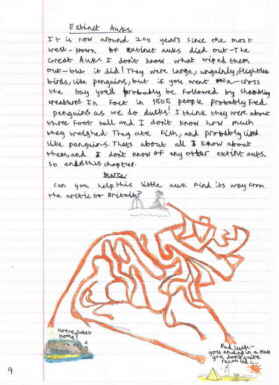 Extinct Auks
It is now around 200 years since the most
well-known of extinct auks died out-The
Great Auk! I don't know what wiped them
out-but it did! They were large, ungainly, flightless
birds, like penguins, but if you went
the bay you'd probably be followed by
creatures! In fact in 1505 people probably fed
penguins as we do ducks! I think they were about
three foot tall and I don't know how much
they weighed. They ate fish, and probably lived
like penguins. Thats about all I know about
them, and I don't know of any other extinct auks
so ends this chapter.
Maze
Can you help this little auk find its way from
the arctic to Britain?
home, sweet
home!
Bad luck-
you ended in a
9